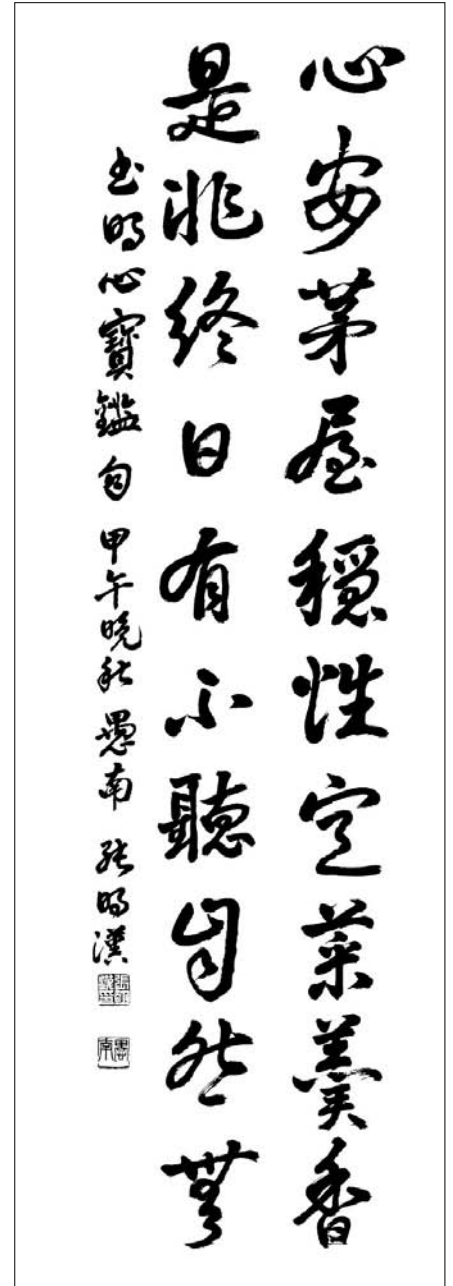 心安茅屋穩性定菜羹香
是非終日有不聽自然無
書明心寶鑑句 甲午晩秋 愚南 張明漢